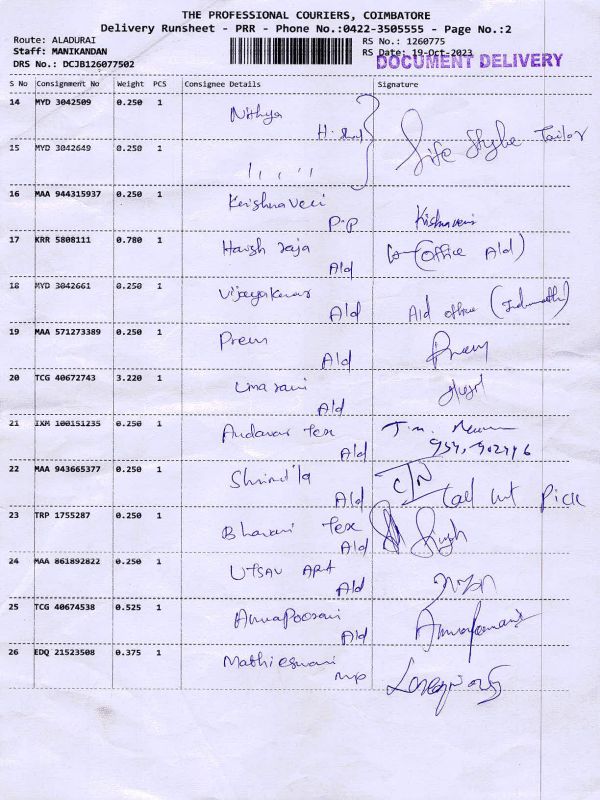 THE PROFESSIONAL COURIERS, COIMBATORE
Delivery Runsheet - PRR - Phone No.:0422-3505555 - Page No.:2
Route: ALADURAI
RS No.: 1260775
Staff: MANIKANDAN
RS Date: 19-Oct-2023
DRS No.: DCJB126077502
DOCUMENT DELIVERY
S No Consignment No Weight PCS Consignee Details Signature
14 MYD 3042509 0.250 1 Nithya
Life Style Tailor
15 MYD 3042649 0.250 1 " " "
16 MAA 944315937 0.250 1 Krishnaveni
P.P Krishnaveni
17 KRR 5808111 0.780 1 Harish raja (Office Ald)
Ald
18 MYD 3042661 0.250 1 Vijayakumar
Ald Ald office
19 MAA 571273389 0.250 1 Prem
Ald Prem
20 TCG 40672743 3.220 1 Uma rani
Ald
21 IXM 100151235 0.250 1 Andavar Tex
Ald
22 MAA 943665377 0.250 1
Ald
23 TRP 1755287 0.250 1 Bhavani Tex
Ald
24 MAA 861892822 0.250 1 UTSAV
Ald
25 TCG 40674538 0.525 1 Annapoorani
Ald
26 EDQ 21523508 0.375 1 Matheswari